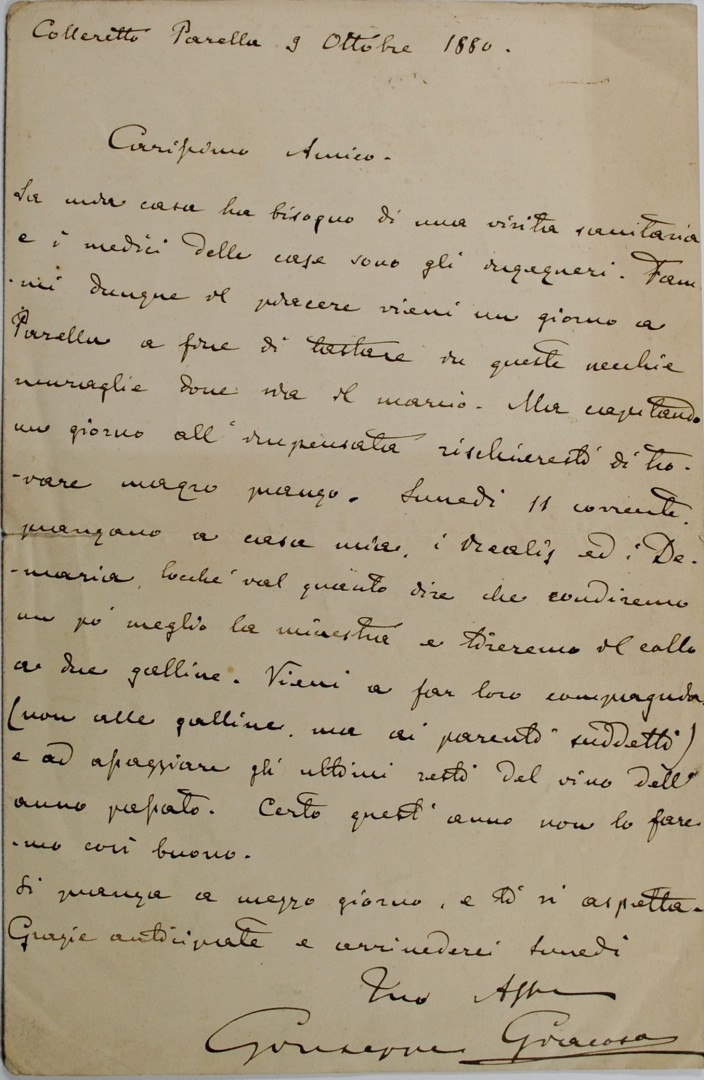 Colleretto Parella 9 Ottobre 1880.
Carissimo Amico.
La mia casa ha bisogno di una visita sanitaria
e i medici delle case sono gli ingegneri. Fam
-mi dunque il piacere vieni un giorno a
Parella a fine di tastare in queste vecchie
muraglie dove sia il marcio. Ma capitando
un giorno all'impensata rischieresti di tro-
-vare magro pranzo. Lunedi 11 corrente,
pranzano a casa mia, i Realis ed i De-
-maria, locché val quanto dire che condiremo
un po' meglio la minestra e tireremo il collo
a due galline. Vieni a far loro compagnia,
(non alle galline, ma ai parenti suddetti)
e ad assaggiare gli ultimi resti del vino dell'
anno passato. Certo quest'anno non lo fare
-mo così buono.
Si pranza a mezzo giorno, e ti si aspetta.
Grazie anticipate e arrivederci lunedi
Tuo Affmo
Giuseppe Giacosa